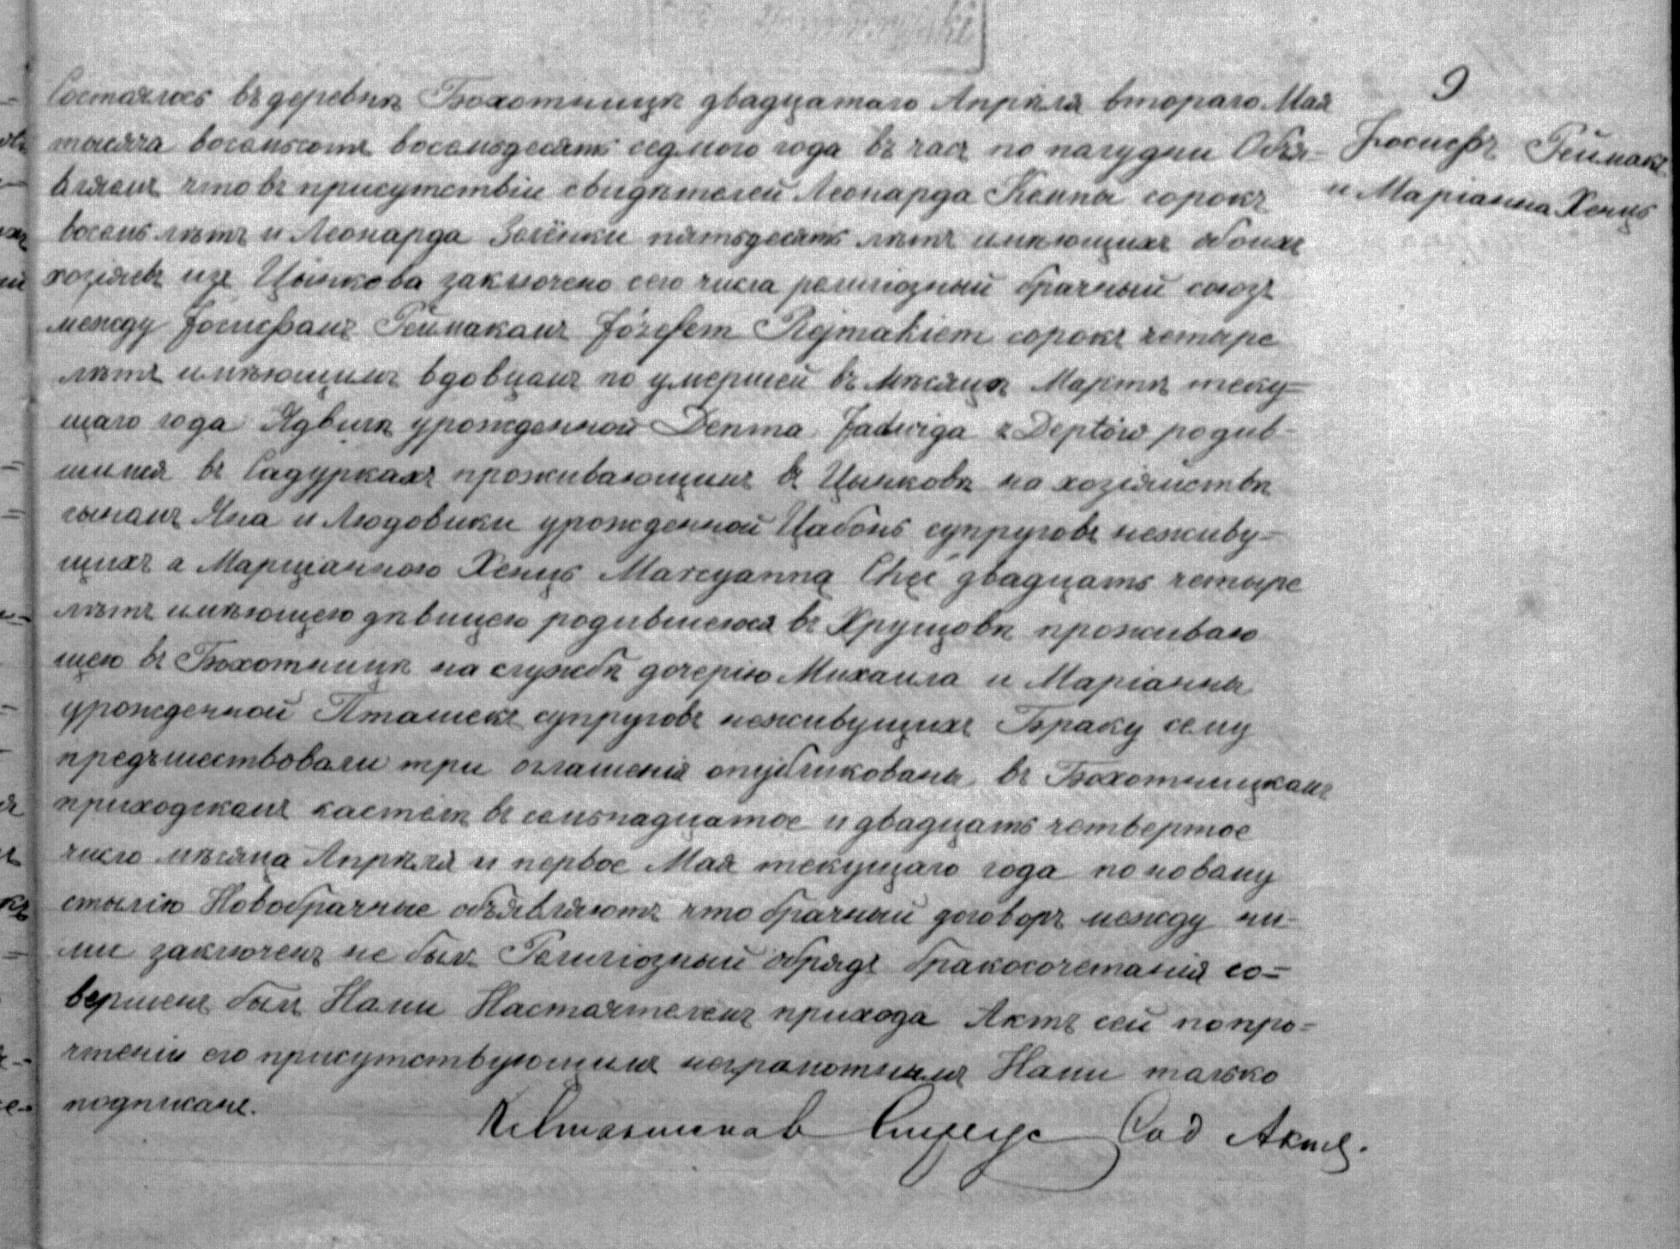 9
Іосифъ Реймакъ
и Маріанна Хенць
Состоялось въ деревнѣ Бохотницѣ двадцатаго Апрѣля втораго Мая
тысяча восемьсотъ восемьдесятъ седмого года въ часъ по полудни Объя-
вляемъ что въ присутствіи свидѣтелей Леонарда Кемпы сорокъ
восемь лѣтъ и Леонарда пятьдесятъ лѣтъ имѣющихъ обоихъ
хозяевъ изъ Цынкова заключено сего числа религіозный брачный союзъ
между Іосифомъ Реймакомъ Józefem Rejmakiem сорокъ четыре
лѣтъ имѣющимъ вдовцомъ по умершей въ мѣсяцѣ Мартѣ теку=
щаго года Ядвигѣ урожденной Депта Jadwiga z Deptów родив-
шимся въ Садуркахъ проживающимъ въ Цынковѣ на хозяйствѣ
сыномъ Яна и Людовики урожденной Цабонь супруговъ неживу=
щихъ а Марціанною Хенць Marcyanną Chęć двадцать четыре
лѣтъ имѣющею дѣвицею родившеюся въ Хрущовѣ проживаю
щею въ Бохотницѣ на службѣ дочерію Михаила и Маріанны
урожденной Пташекъ супруговъ неживущихъ Браку сему
предъшествовали три оглашенія опубликованы въ Бохотницкомъ
приходскомъ костелѣ въ семьнадцатое и двадцать четвертое
число мѣсяца Апрѣля и первое Мая текущаго года по новому
стилю Новобрачные объявляютъ что брачный договоръ между ни-
ми заключенъ не былъ Религіозный обрядъ бракосочетанія со=
вершенъ былъ Нами Настоятелемъ прихода Актъ сей по про=
чтеніи его присутствующимъ неграмотнымъ Нами только
подписанъ.
Сод Акты.